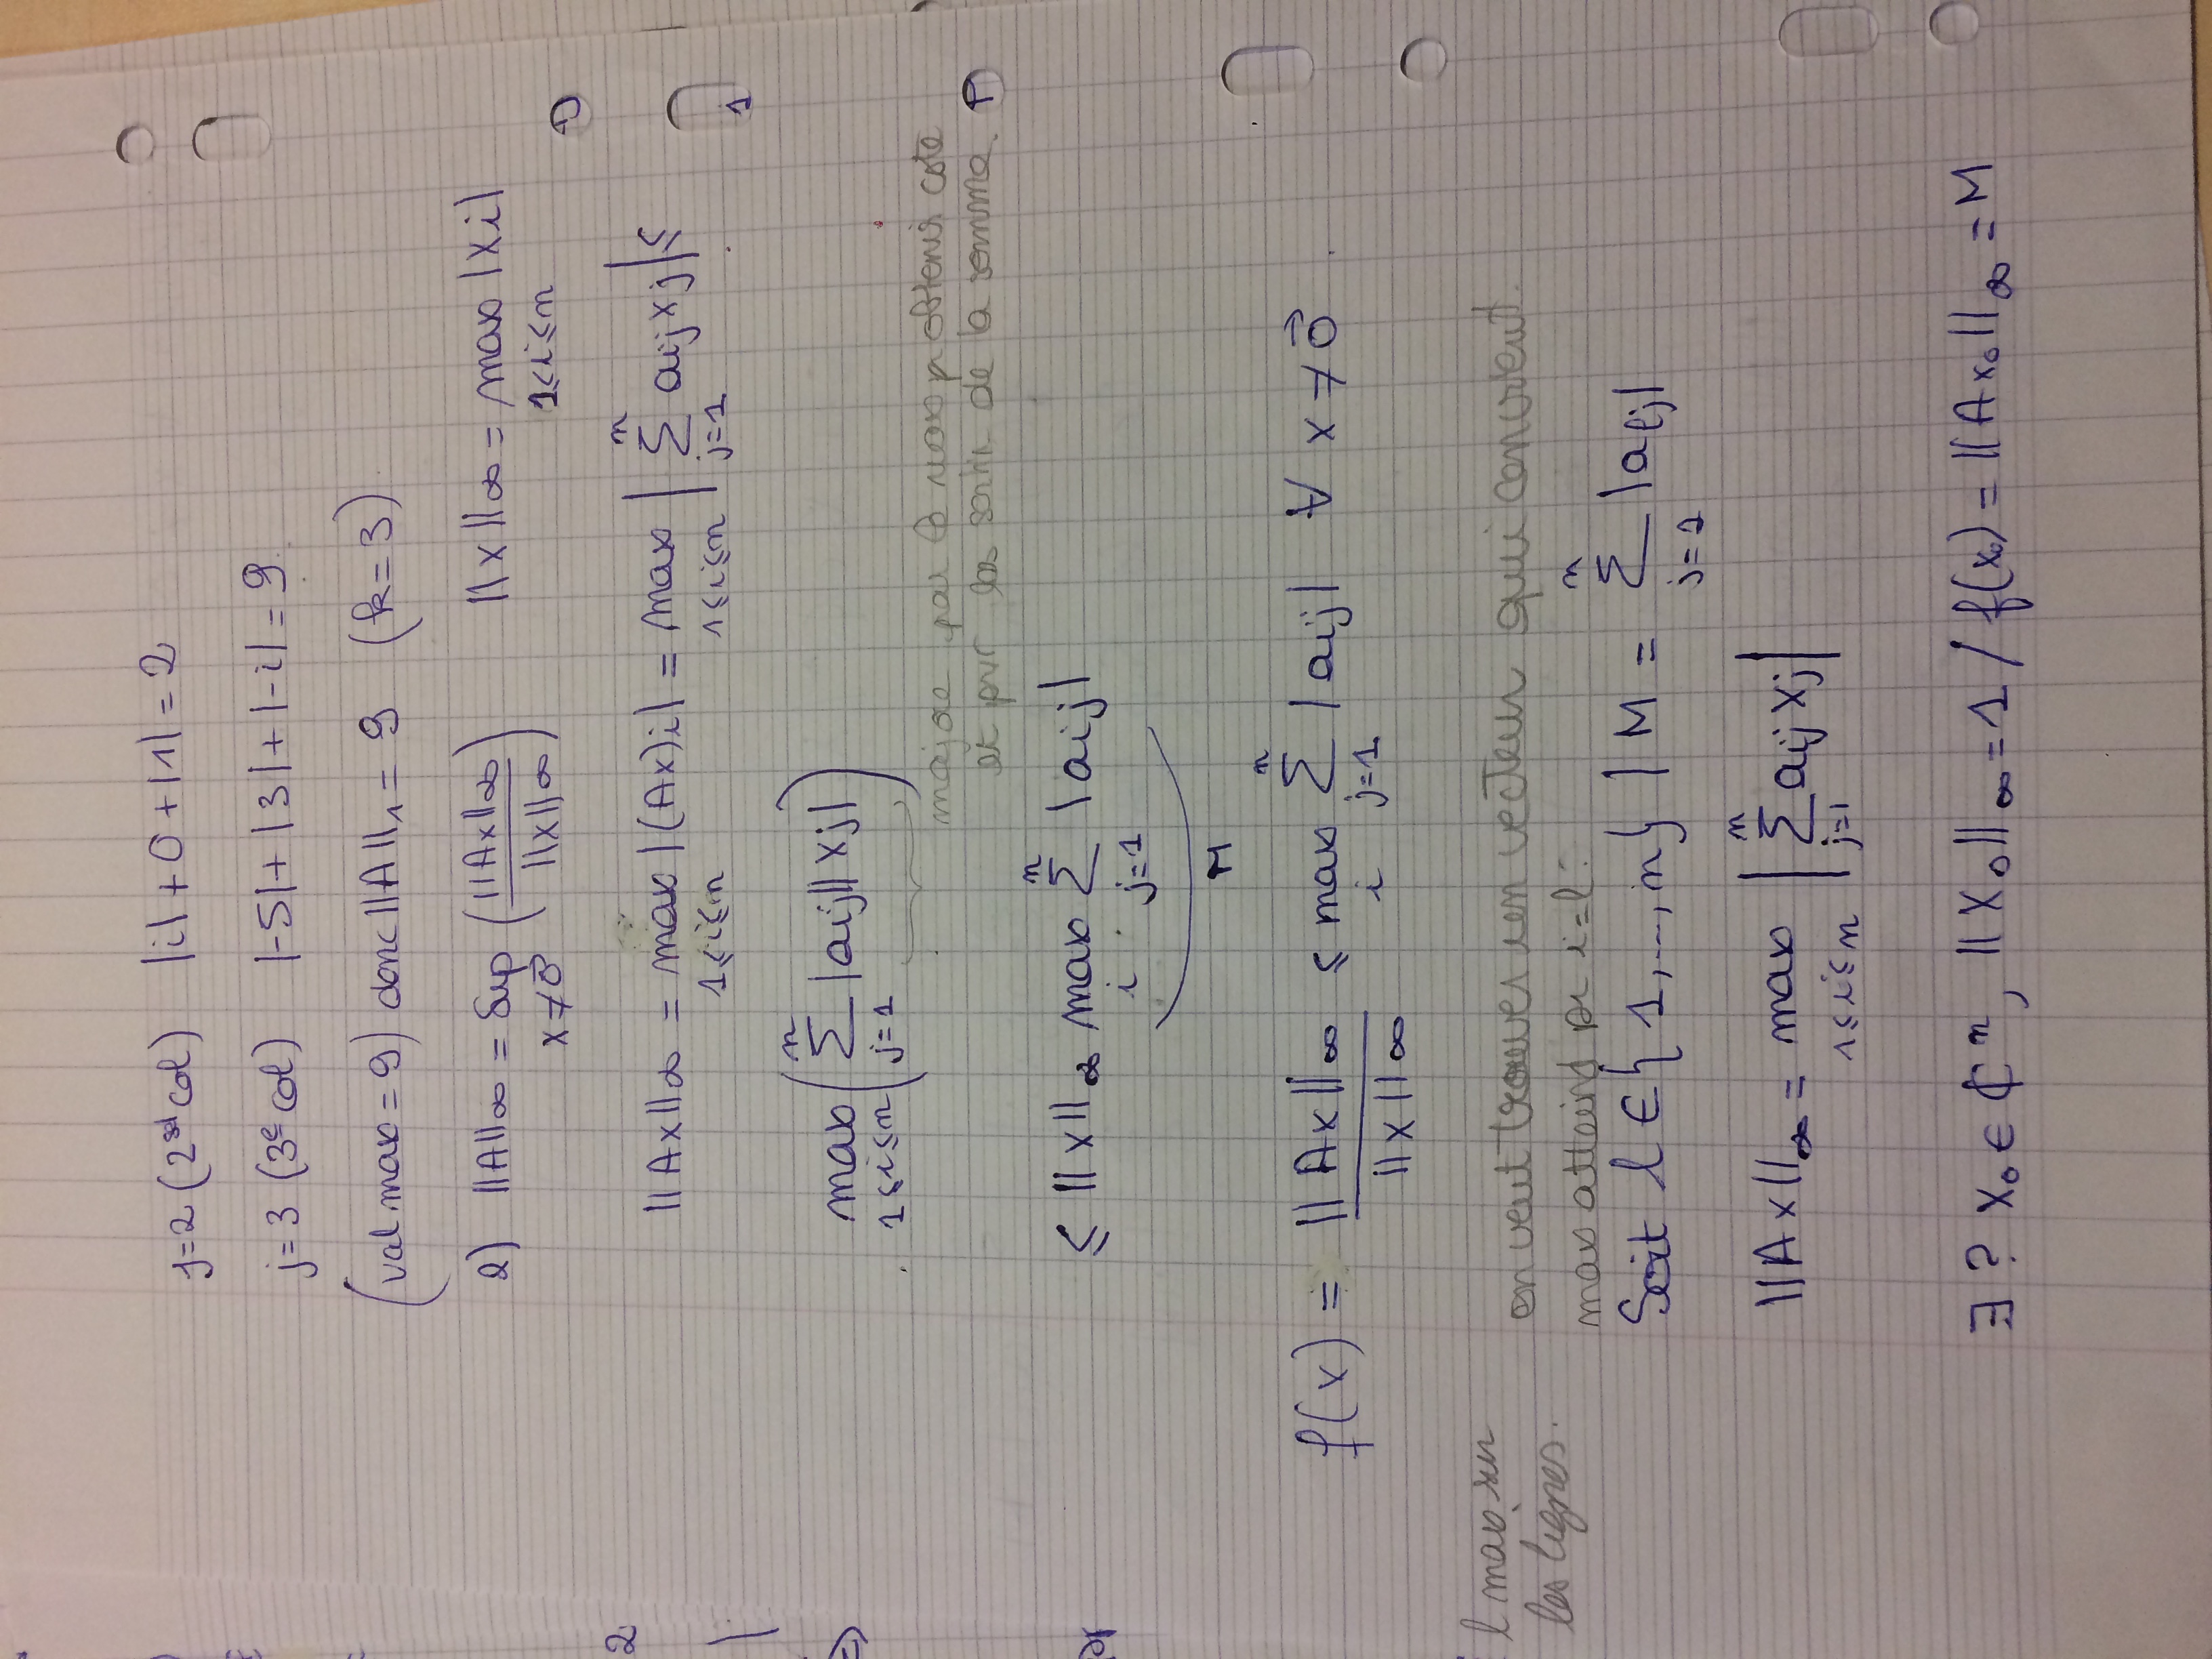 j=2 (2nd col) |i| + 0 + |1| = 2
j=3 (3e col) |-5| + |3| + |-i| = 9.
(val.max = 9) donc ||A||₁ = 9 (k=3)
2) ||A||∞ = Sup x≠0⃗ (||Ax||∞ / ||x||∞) ||x||∞ = max 1≤i≤n |xi|
||Ax||∞ = max 1≤i≤n |(Ax)i| = max 1≤i≤n | Σ j=1 n aij xj | ≤
max 1≤i≤n ( Σ j=1 n |aij||xj| )
majore par le max pr obtenir cste
et pvr les sortir de la somme.
≤ ||x||∞ max i Σ j=1 n |aij|
M
f(x) = ||Ax||∞ / ||x||∞ ≤ max i Σ j=1 n |aij| ∀ x≠0⃗.
l max sur
les lignes.
on veut trouver un vecteur qui convient.
max atteint pr i=l:
Soit l ∈ {1,...,n} | M = Σ j=1 n |alj|
||Ax||∞ = max 1≤i≤n | Σ j=1 n aij xj |
∃ ? x₀ ∈ ℂⁿ, ||x₀||∞ = 1 / f(x₀) = ||Ax₀||∞ = M